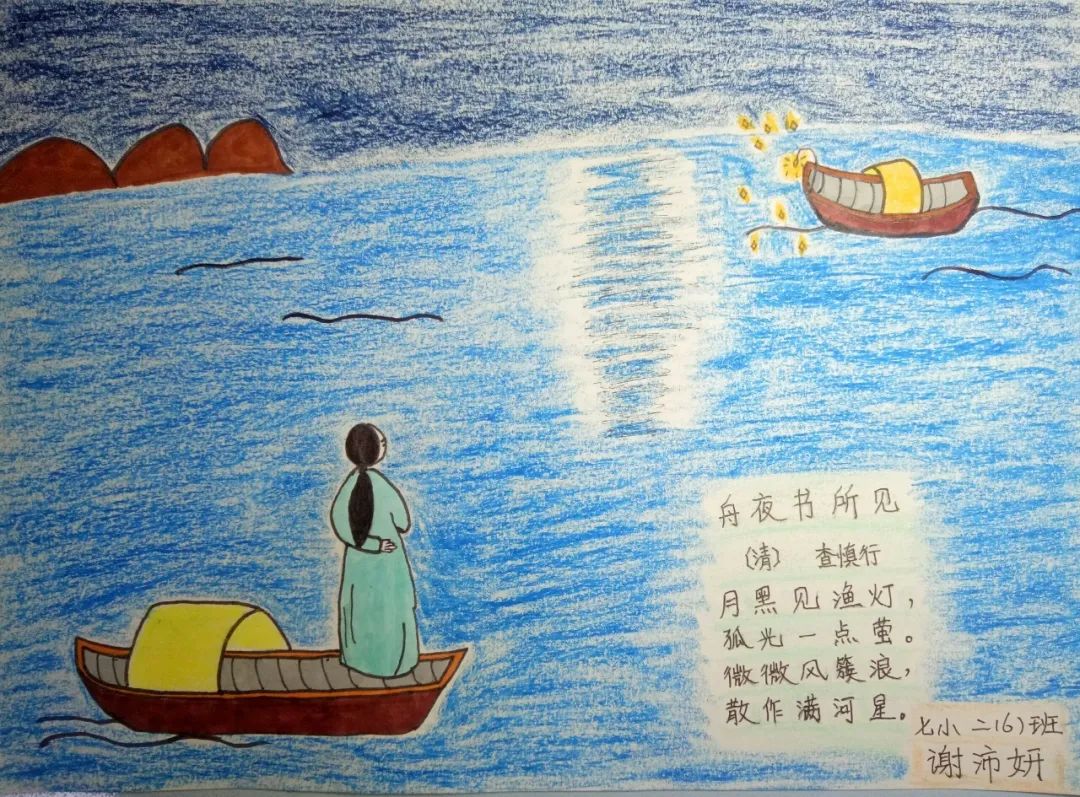 舟夜书所见
（清） 查慎行
月黑见渔灯，
孤光一点萤。
微微风簇浪，
散作满河星。
七小二（6）班
谢沛妍